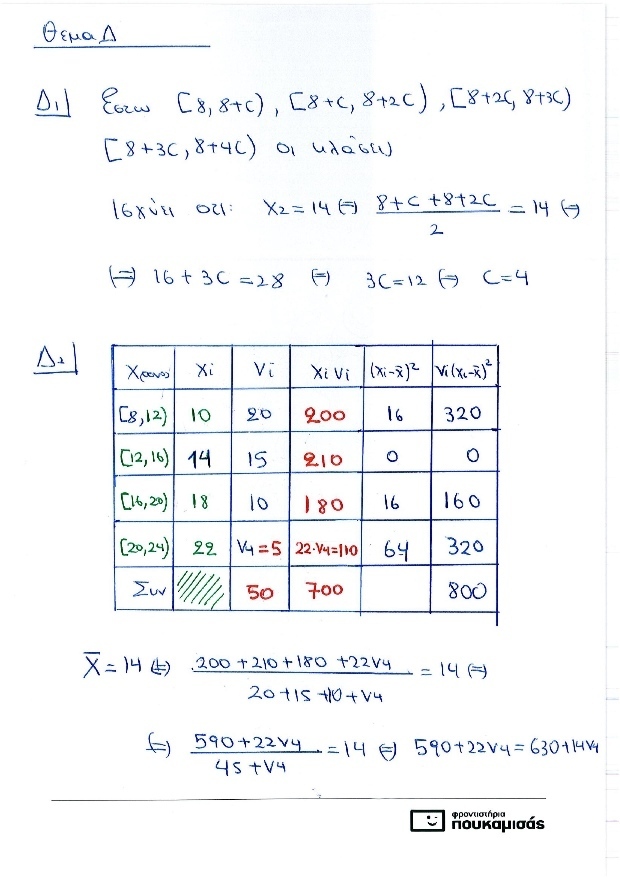 Θέμα Δ
Δ1| Έστω [8, 8+c), [8+c, 8+2c), [8+2c, 8+3c)
[8+3c, 8+4c) οι κλάσεις
Ισχύει ότι: x2=14 ⇔ 8+c+8+2c / 2 = 14 ⇔
⇔ 16+3c=28 ⇔ 3c=12 ⇔ c=4
Δ2|
Χρόνος xi vi xi vi (xi-x̄)² vi(xi-x̄)²
[8,12) 10 20 200 16 320
[12,16) 14 15 210 0 0
[16,20) 18 10 180 16 160
[20,24) 22 v4=5 22·v4=110 64 320
Συν 50 700 800
x̄=14 ⇔ 200+210+180+22v4 / 20+15+10+v4 = 14 ⇔
⇔ 590+22v4 / 45+v4 = 14 ⇔ 590+22v4=630+14v4
φροντιστήρια
πουκαμισάς